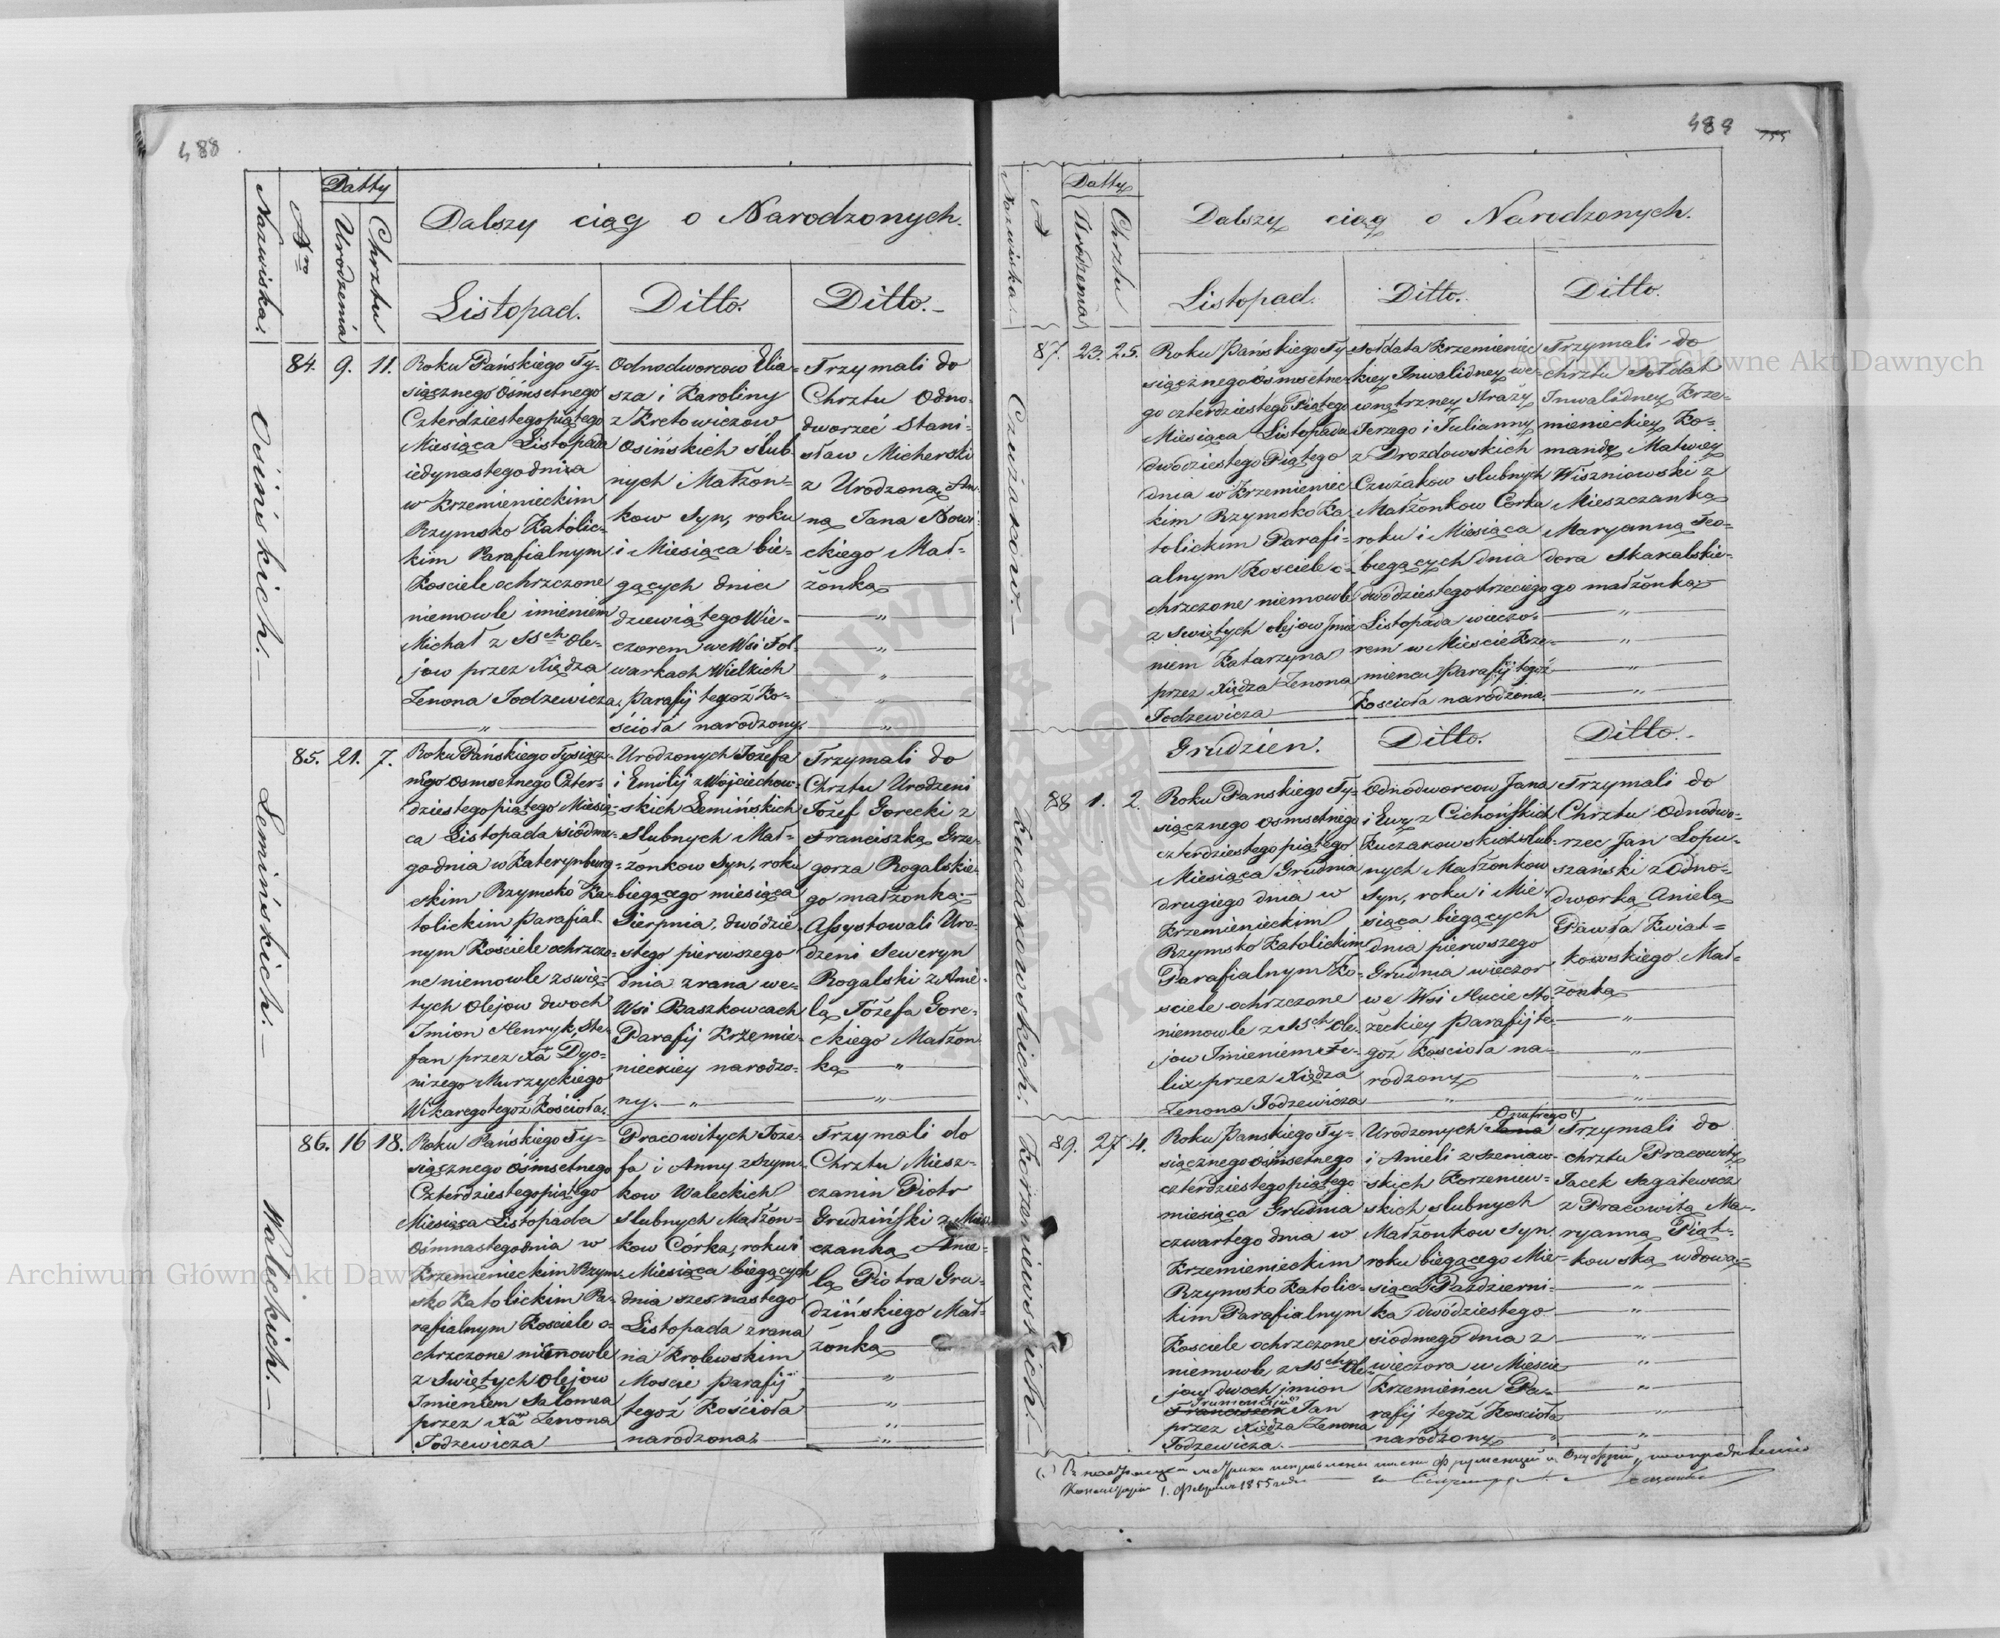 488
Nazwiska.
Nro
Datty
Urodzenia
Chrztu
Dalszy ciąg o Narodzonych.
Listopad.
Ditto.
Ditto.
Osińskich.
84.
9.
11.
Roku Pańskiego Ty-
siącznego ośmsetnego
Czterdziestego piątego
Miesiąca Listopada
iedynastego dnia
w Krzemienieckim
Rzymsko Katolic-
kim Parafialnym
Kosciele ochrzczone
niemowle imieniem
Michał z SSch Ole-
jow przez Xiędza
Zenona Jodzewicza,
Odnodworcow Elia-
sza i Karoliny
z Kretowiczow
Osińskich slub-
nych Małżon-
kow Syn, roku
i Miesiąca bie-
gących dnia
dziewiątego Wie-
czorem we Wsi Fol-
warkach Wielkich
Parafij tegoż Ko-
ścioła narodzony.
Trzymali do
Chrztu Odno-
dworzeć Stani-
sław Micherski
z Urodzoną An-
ną Jana Nowi-
ckiego Mał-
żonką
Lemińskich.
85.
21.
7.
Roku Pańskiego Tysiącz-
nego osmsetnego Czter-
dziestego piątego Miesią-
ca Listopada siódme-
go dnia w Katerynburg-
skim Rzymsko Ka-
tolickim parafial-
nym Kosciele ochrzczo-
ne niemowle z swię-
tych Olejow dwoch
Imion Henryk, Ste-
fan przez Xa Dyo-
nizego Murzyckiego
Wikarego tegoż Kościoła.
Urodzonych Józefa
i Emilij z Wojciechow-
skich Lemińskich
Slubnych Mał-
żonkow Syn, roku
biegącego miesiąca
Sierpnia, dwódzie-
stego pierwszego
dnia z rana we
Wsi Baszkowcach
Parafij Krzemie-
nieckiey narodzo-
ny.
Trzymali do
Chrztu Urodzeni
Józef Gorecki z
Franciszką Grze-
gorza Rogalskie-
go małżonką.
Assystowali Uro-
dzeni Seweryn
Rogalski z Anie-
lą Józefa Gore-
ckiego Małżon
ką
Waleckich.
86.
16
18.
Roku Pańskiego Ty-
siącznego Ośmsetnego
Czterdziestego piątego
Miesiąca Listopada
Ośmnastego dnia w
Krzemienieckim Rzym-
sko Katolickim Pa-
rafialnym Kosciele o-
chrzczone niemowle
z Swiętych Olejow
Imieniem Salomea
przez Xa Zenona
Jodzewicza
Pracowitych Józe-
fa i Anny z Szym-
kow Waleckich
Slubnych Małżon-
kow Córka, roku i
Miesiąca biegących
dnia szesnastego
Listopada z rana
na Krolewskim
Moscie parafij
tegoż Kościoła
narodzona.
Trzymali do
Chrztu Miesz-
czanin Piotr
Grudziński z Mie-
czanką Anie-
lą Piotra Gru-
dzińskiego Mał-
żonką
489
Nazwiska.
Datty
Urodzenia
Chrztu
Dalszy ciąg o Narodzonych.
Listopad.
Ditto.
Ditto.
Czużakow.
87.
23.
25.
Roku Pańskiego Ty-
siącznego Ośmsetne-
go czterdziestego Piątego
Miesiąca Listopada
dwódziestego Piątego
dnia w Krzemieniec-
kim Rzymsko Ka-
tolickim Parafi-
alnym Kosciele o-
chrzczone niemowle
z Swiętych olejow Jmie-
niem Katarzyna
przez Xiędza Zenona
Jodzewicza
Sołdata Krzemieniec-
kiey Inwalidney we-
wnątrzney straży
Jerzego i Julianny
z Drozdowskich
Czużakow slubnych
Małżonkow Corka
roku i Miesiąca
biegących dnia
dwódziestego trzeciego
Listopada wieczo-
rem w Miescie Krze-
miencu Parafij tegoż
Kosciola narodzona.
Trzymali do
chrztu Sołdat
Inwalidney Krze-
mienieckiey Ko-
mandy Matwiey
Wiszniowski z
Mieszczanką
Maryanną Teo-
dora Skakalskie-
go małżonką
Grudzien.
Ditto.
Ditto.
Kuczakowskich.
88
1.
2.
Roku Panskiego Ty-
siącznego osmsetnego
czterdziestego piątego
Miesiąca Grudnia
drugiego dnia w
Krzemienieckim
Rzymsko Katolickim
Parafialnym Ko-
sciele ochrzczone
niemowle z SSch Ole-
jow Imieniem Fe-
lix przez Xiędza
Zenona Jodzewicza
Odnodworcow Jana
i Ewy z Cichońskich
Kuczakowskich slub-
nych Małżonkow
Syn, roku i Mie-
siąca biegących
dnia pierwszego
Grudnia wieczor
we Wsi Hucie Sto-
żeckiey Parafij te-
goż Kosciola na-
rodzony
Trzymali do
Chrztu Odnodwo-
rzec Jan Łopu-
szański z Odno-
dworką Anielą
Pawła Kwiat-
kowskiego Mał-
żonką
Korzeniewskich.
89.
27.
4.
Roku Pańskiego Ty-
siącznego osmsetnego
czterdziestego piątego
miesiąca Grudnia
czwartego dnia w
Krzemienieckim
Rzymsko Katolic-
kim Parafialnym
Kosciele ochrzczone
niemowle z SSch Ole-
jow dwoch jmion
Franciszek Jan
przez Xiędza Zenona
Jodzewicza.
Onufrego
Urodzonych Jana
i Anieli z Szeniaw-
skich Korzeniew-
skich slubnych
Małżonkow Syn,
roku biegącego Mie-
siąca Październi-
ka dwódziestego
siodmego dnia z
wieczora w Miescie
Krzemieńcu Pa-
rafij tegoż Kosciola
narodzony
Trzymali do
chrztu Pracowity
Jacek Sagatewicz
z Pracowitą Ma-
ryanną Piąt-
kowską wdową
1855
Archiwum Główne Akt Dawnych
Archiwum Główne Akt Dawnych